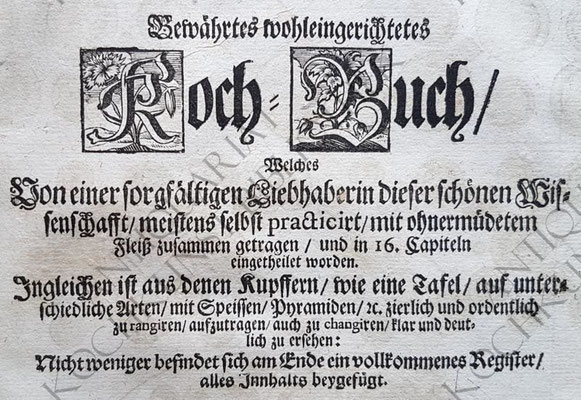 Bewährtes wohleingerichtetes
Koch-Buch/
Welches
Von einer sorgfältigen Liebhaberin dieser schönen Wis-
senschafft/ meistens selbst practicirt/ mit ohnermüdetem
Fleiß zusammen getragen/ und in 16. Capiteln
eingetheilet worden.
Ingleichen ist aus denen Kupffern/ wie eine Tafel/ auf unter-
schiedliche Arten/ mit Speissen/ Pyramiden/ ꝛc. zierlich und ordentlich
zu rangiren/ aufzutragen/ auch zu changiren/ klar und deut-
lich zu ersehen:
Nicht weniger befindet sich am Ende ein vollkommenes Register/
alles Innhalts beygefügt.